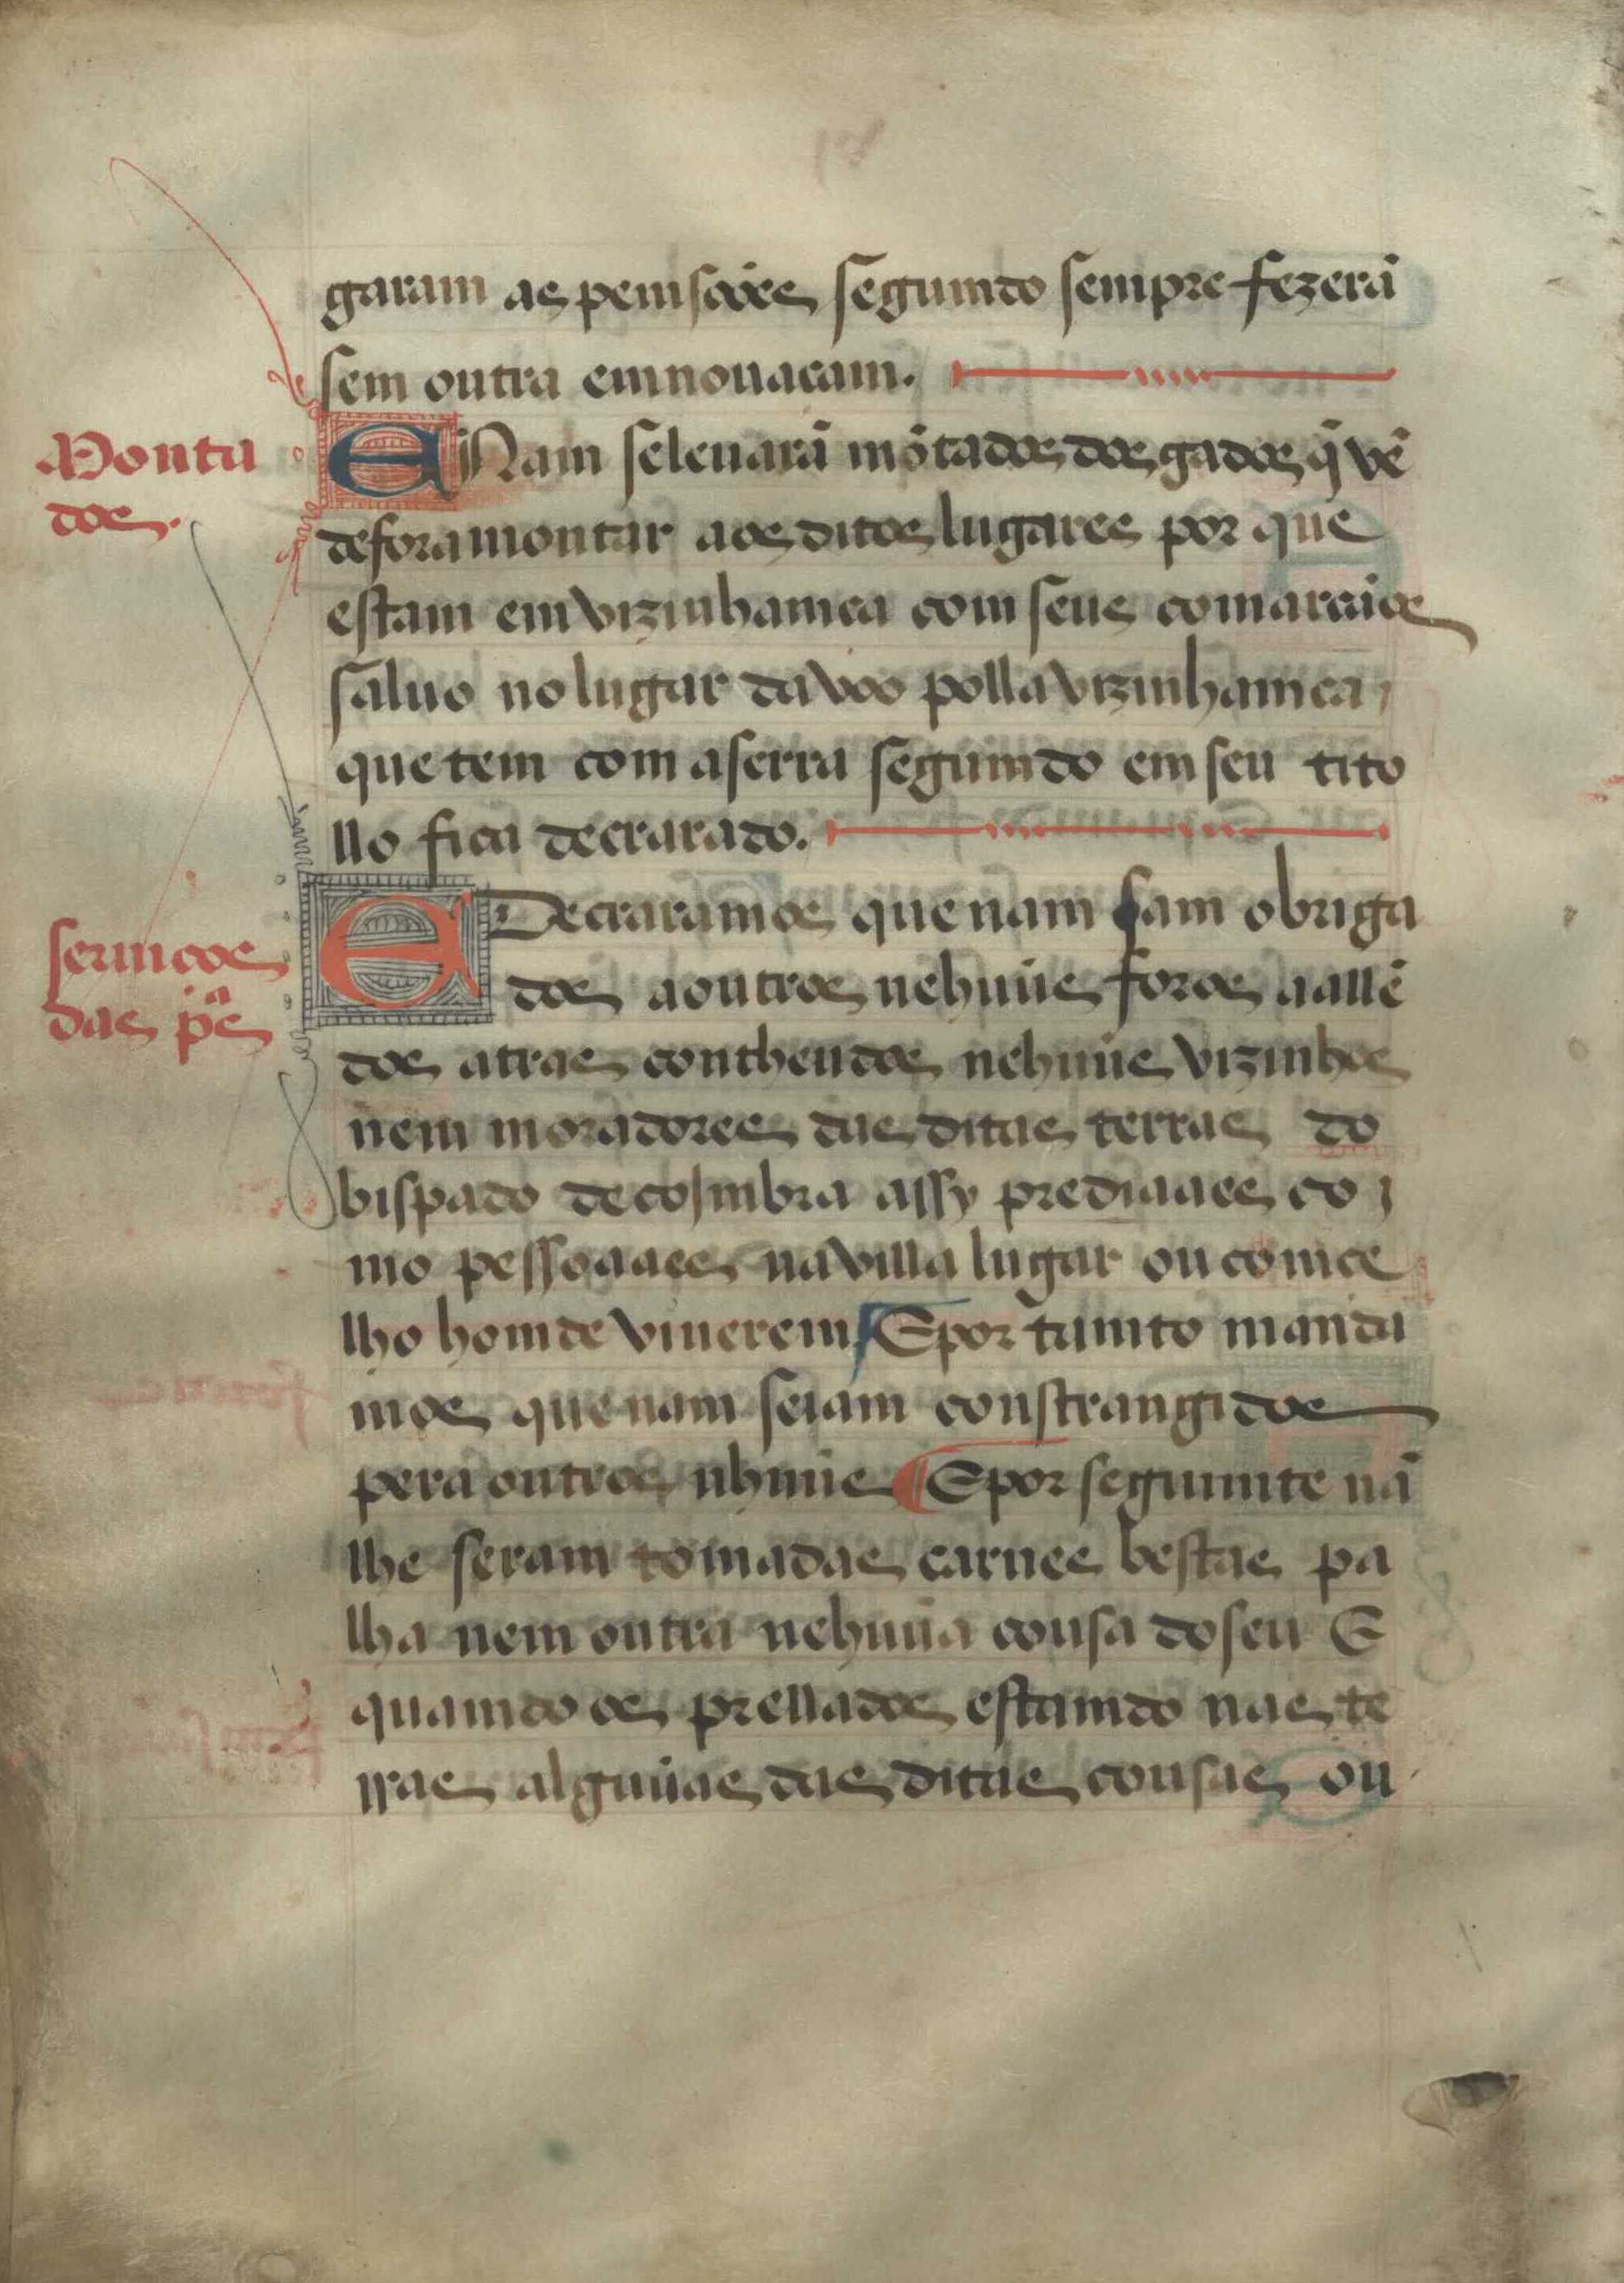 garam as pemsoões segumdo sempre fezerã
sem outra emnouacam.
Montados.
E Nam se leuarã mõtados dos gados q̃ vẽ
de fora montar aos ditos lugares por que
estam em vizinhamca com seus comarcãos
saluo no lugar da voo polla vizinhamca
que tem com a serra segumdo em seu tito
llo fica decrarado.
seruiços
das pªs
E Decraramos que nam sam obriga
dos a outros nehuũs foros aallẽ
dos atras conthendos nehuũs vizinhos
nem moradores das ditas terras do
bispado de cojmbra assy prediaaes co
mo pessoaaes na villa lugar ou comce
lho homde viuerem E por tamto manda
mos que nam seiam constrangidos
pera outros nhuũs E por seguimte nã
lhe seram tomadas carnes bestas pa
lha nem outra nehuũa cousa do seu E
quamdo os prellados estamdo nas te
rras alguũas das ditas cousas ou